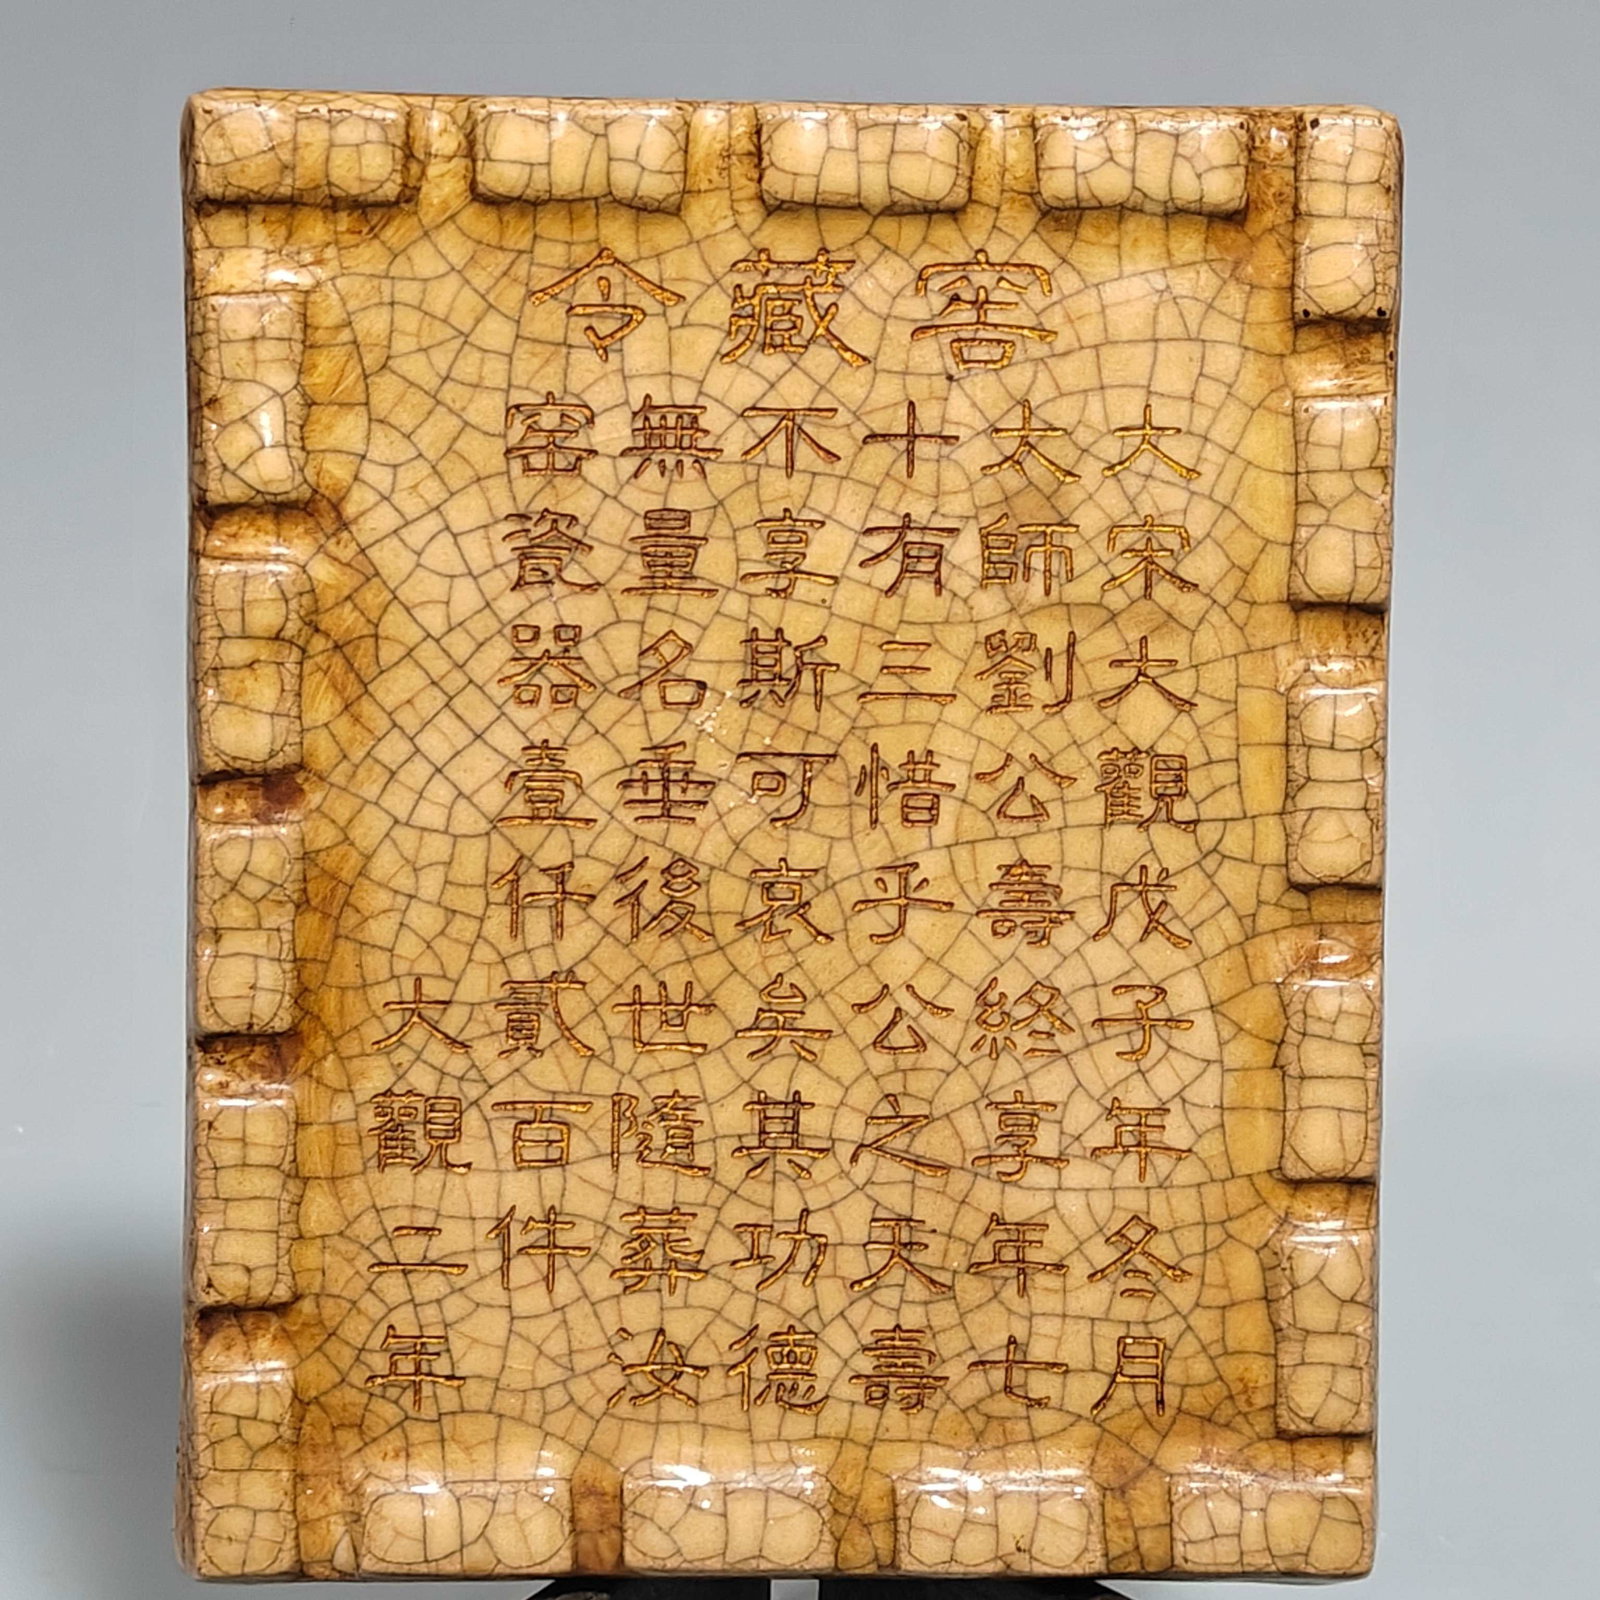 窖藏令
大宋大觀戊子年冬月
太師劉公壽終享年七
十有三惜乎公之天壽
不享斯可哀矣其功德
無量名垂後世隨葬汝
窑瓷器壹仟貳百件
大觀二年